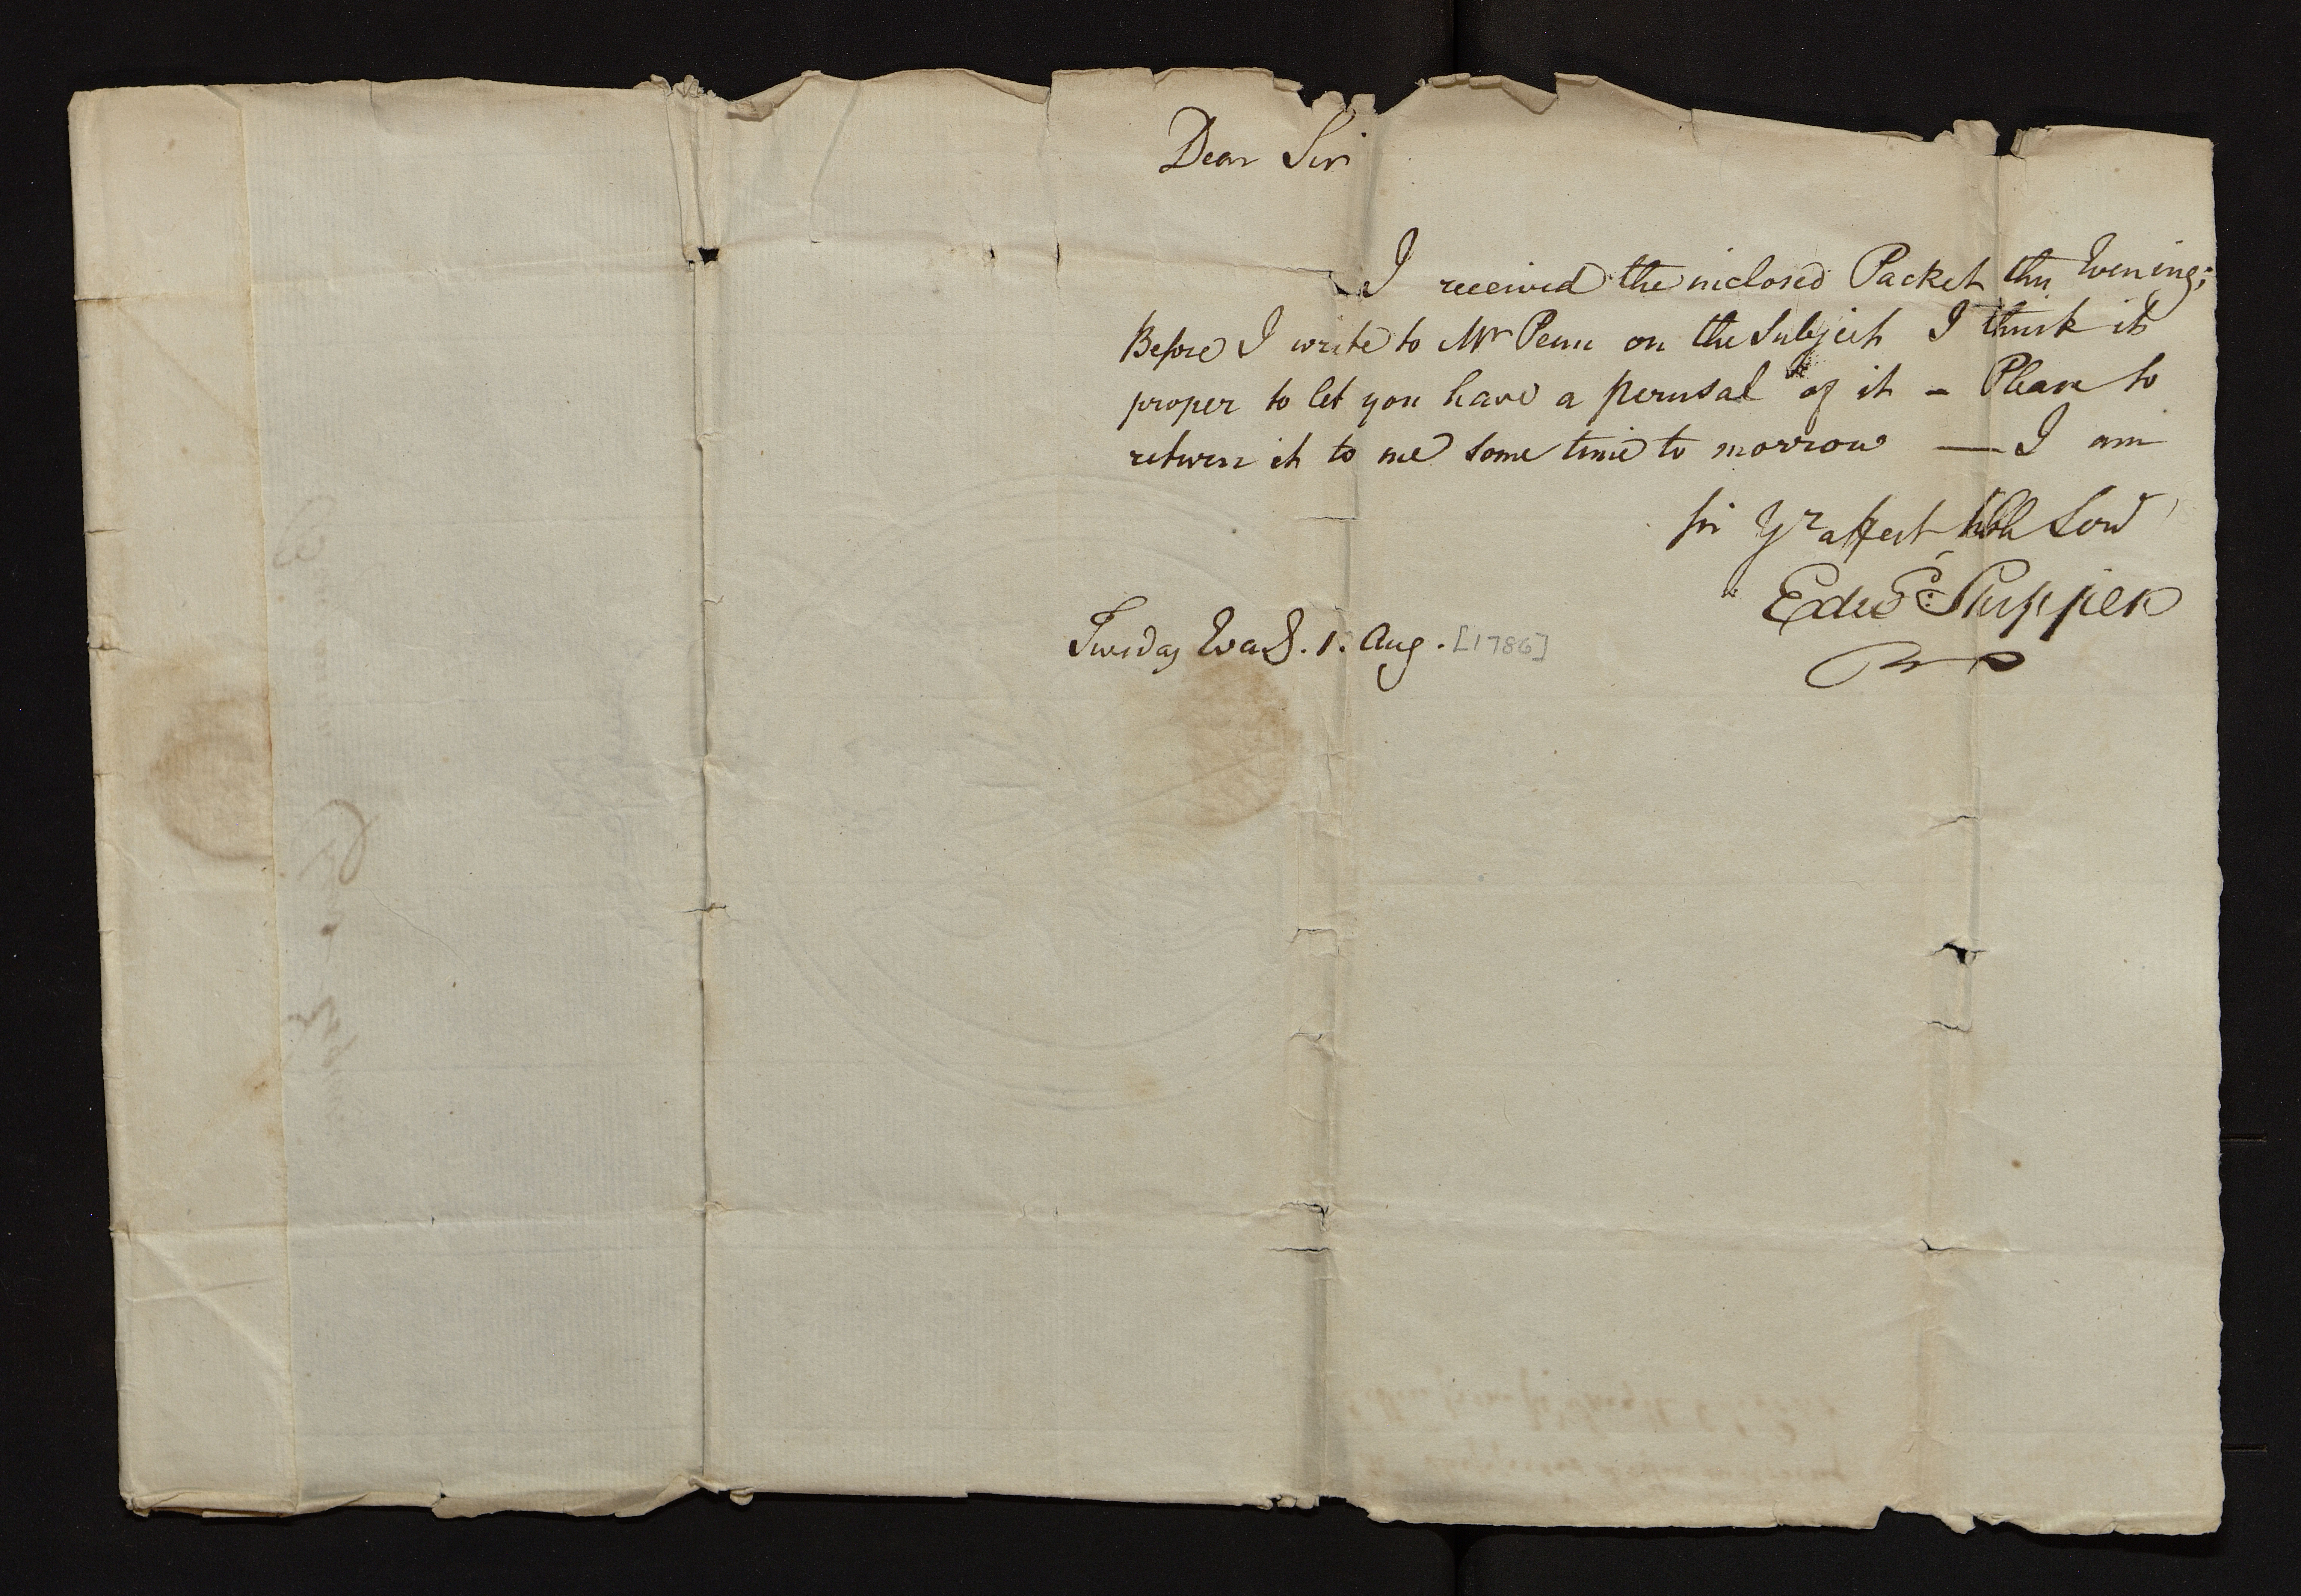 Dear Sir
I received the inclosed Packet this Evening;
Before I write to Mr Penn on the Subject I think it
proper to let you have a perusal of it – Please to
return it to me some time to morrow — I am
Sir Yr affect hble Serv
Edwd: Shippen
Tuesday Eva8. 1. Aug. [1786]